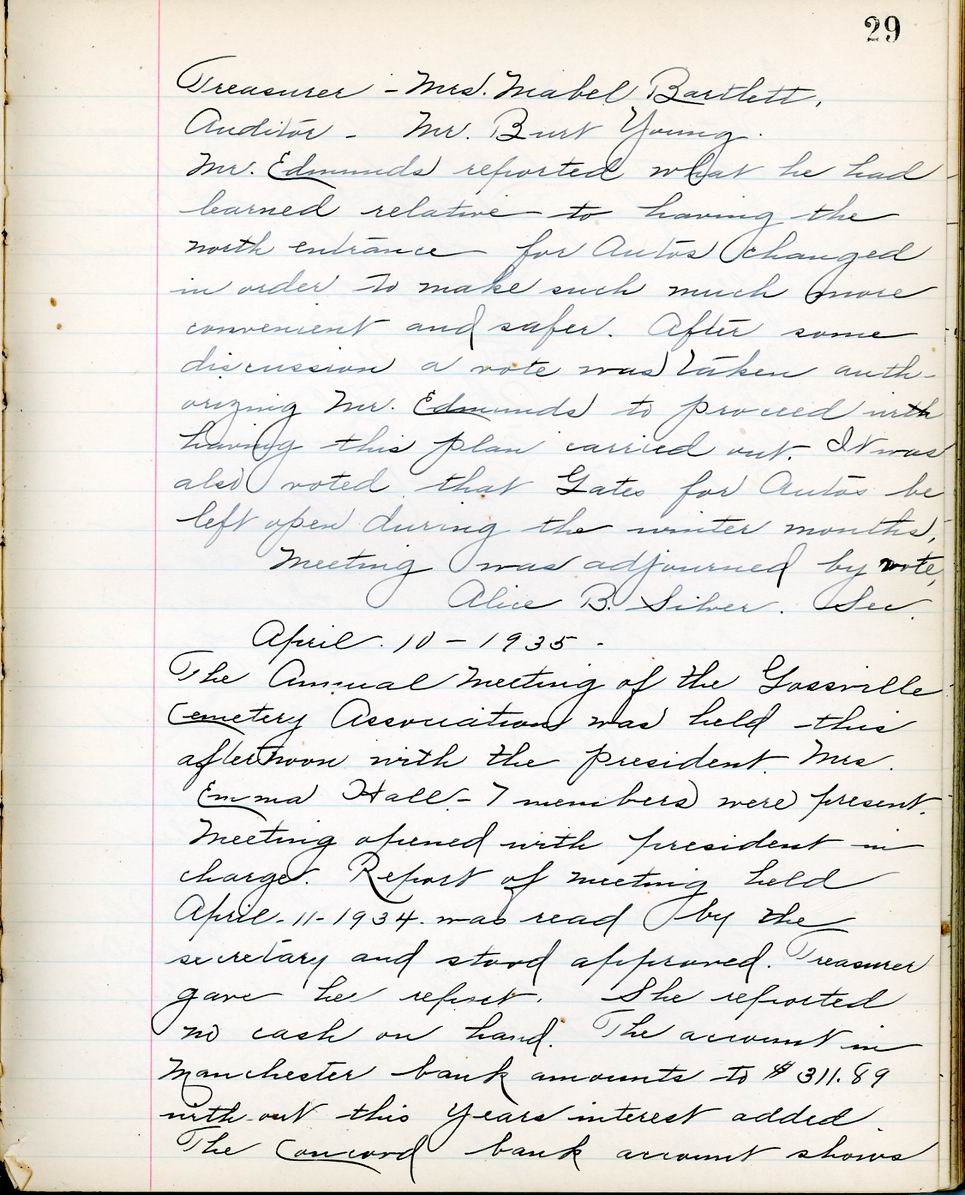 29
Treasurer - Mrs. Mabel Bartlett.
Auditor - Mr. Burt Young.
Mr. Edmunds reported what he had
learned relative to having the
north entrance for Autos changed
in order to make such much more
convenient and safer. After some
discussion a vote was taken auth-
orizing Mr. Edmunds to proceed with
having this plan carried out. It was
also voted that Gates for Autos be
left open during the winter months.
Meeting was adjourned by vote,
Alice B. Silver. Sec.
April. 10 - 1935 -
The Annual Meeting of the Gossville
Cemetery Association was held this
afternoon with the president Mrs.
Emma Hall - 7 members were present.
Meeting opened with president in
charge. Report of meeting held
April - 11 - 1934. was read by the
secretary and stood approved. Treasurer
gave her report. She reported
no cash on hand. The account in
Manchester bank amounts to $311.89
with out this years interest added.
The Concord bank account shows